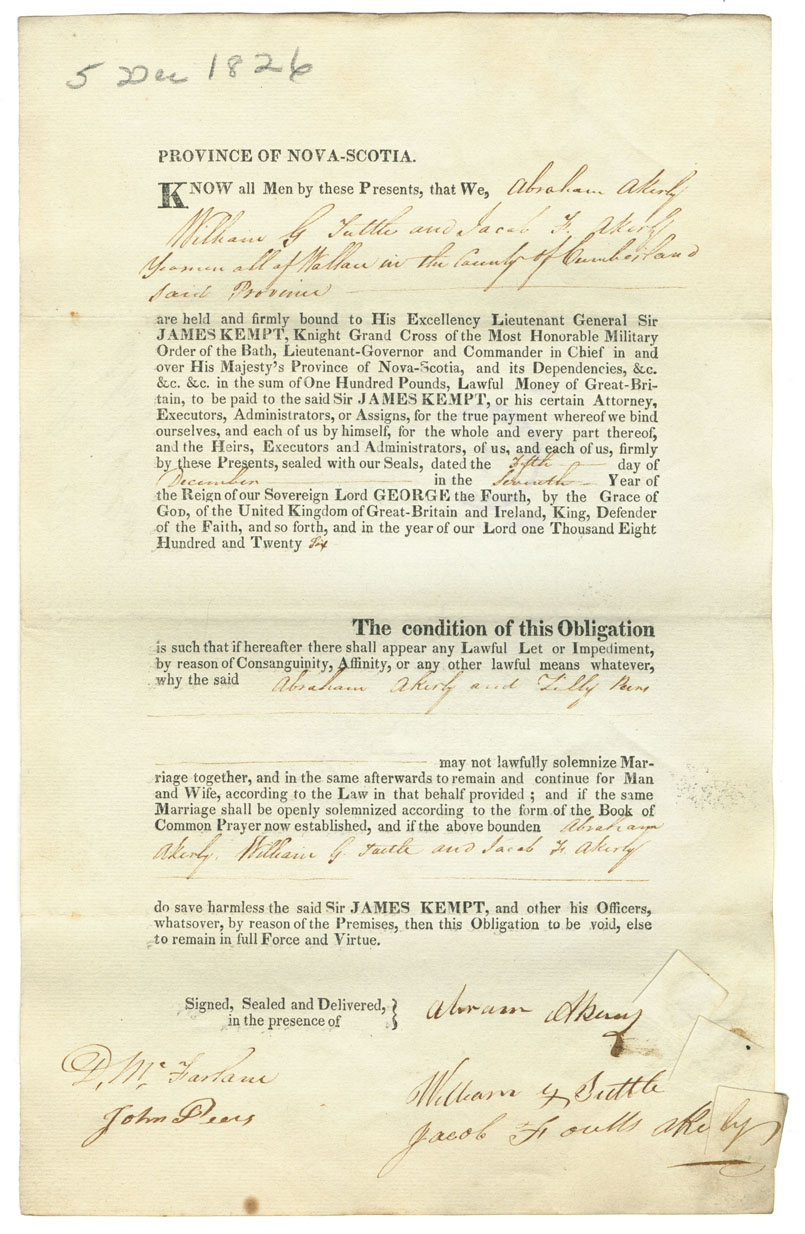 5 Dec 1826
PROVINCE OF NOVA-SCOTIA.
KNOW all Men by these Presents, that We, Abraham Akerly
William G Tuttle and Jacob F. Akerly
Yeomen all of Wallace in the County of Cumberland
said Province
are held and firmly bound to His Excellency Lieutenant General Sir
JAMES KEMPT, Knight Grand Cross of the Most Honorable Military
Order of the Bath, Lieutenant-Governor and Commander in Chief in and
over His Majesty's Province of Nova-Scotia, and its Dependencies, &c.
&c. &c. in the sum of One Hundred Pounds, Lawful Money of Great-Bri-
tain, to be paid to the said Sir JAMES KEMPT, or his certain Attorney,
Executors, Administrators, or Assigns, for the true payment whereof we bind
ourselves, and each of us by himself, for the whole and every part thereof,
and the Heirs, Executors and Administrators, of us, and each of us, firmly
by these Presents, sealed with our Seals, dated the Fifth day of
December in the Seventh Year of
the Reign of our Sovereign Lord GEORGE the Fourth, by the Grace of
GOD, of the United Kingdom of Great-Britain and Ireland, King, Defender
of the Faith, and so forth, and in the year of our Lord one Thousand Eight
Hundred and Twenty Six
The condition of this Obligation
is such that if hereafter there shall appear any Lawful Let or Impediment,
by reason of Consanguinity, Affinity, or any other lawful means whatever,
why the said Abraham Akerly and Tilly Peers
may not lawfully solemnize Mar-
riage together, and in the same afterwards to remain and continue for Man
and Wife, according to the Law in that behalf provided ; and if the same
Marriage shall be openly solemnized according to the form of the Book of
Common Prayer now established, and if the above bounden Abraham
Akerly. William G. Tuttle and Jacob F. Akerly
do save harmless the said Sir JAMES KEMPT, and other his Officers,
whatsover, by reason of the Premises, then this Obligation to be void, else
to remain in full Force and Virtue.
Signed, Sealed and Delivered, }
in the presence of
Abram Akerly
D. McFarlane
William G Tuttle
John Peers
Jacob Foutts Akerly